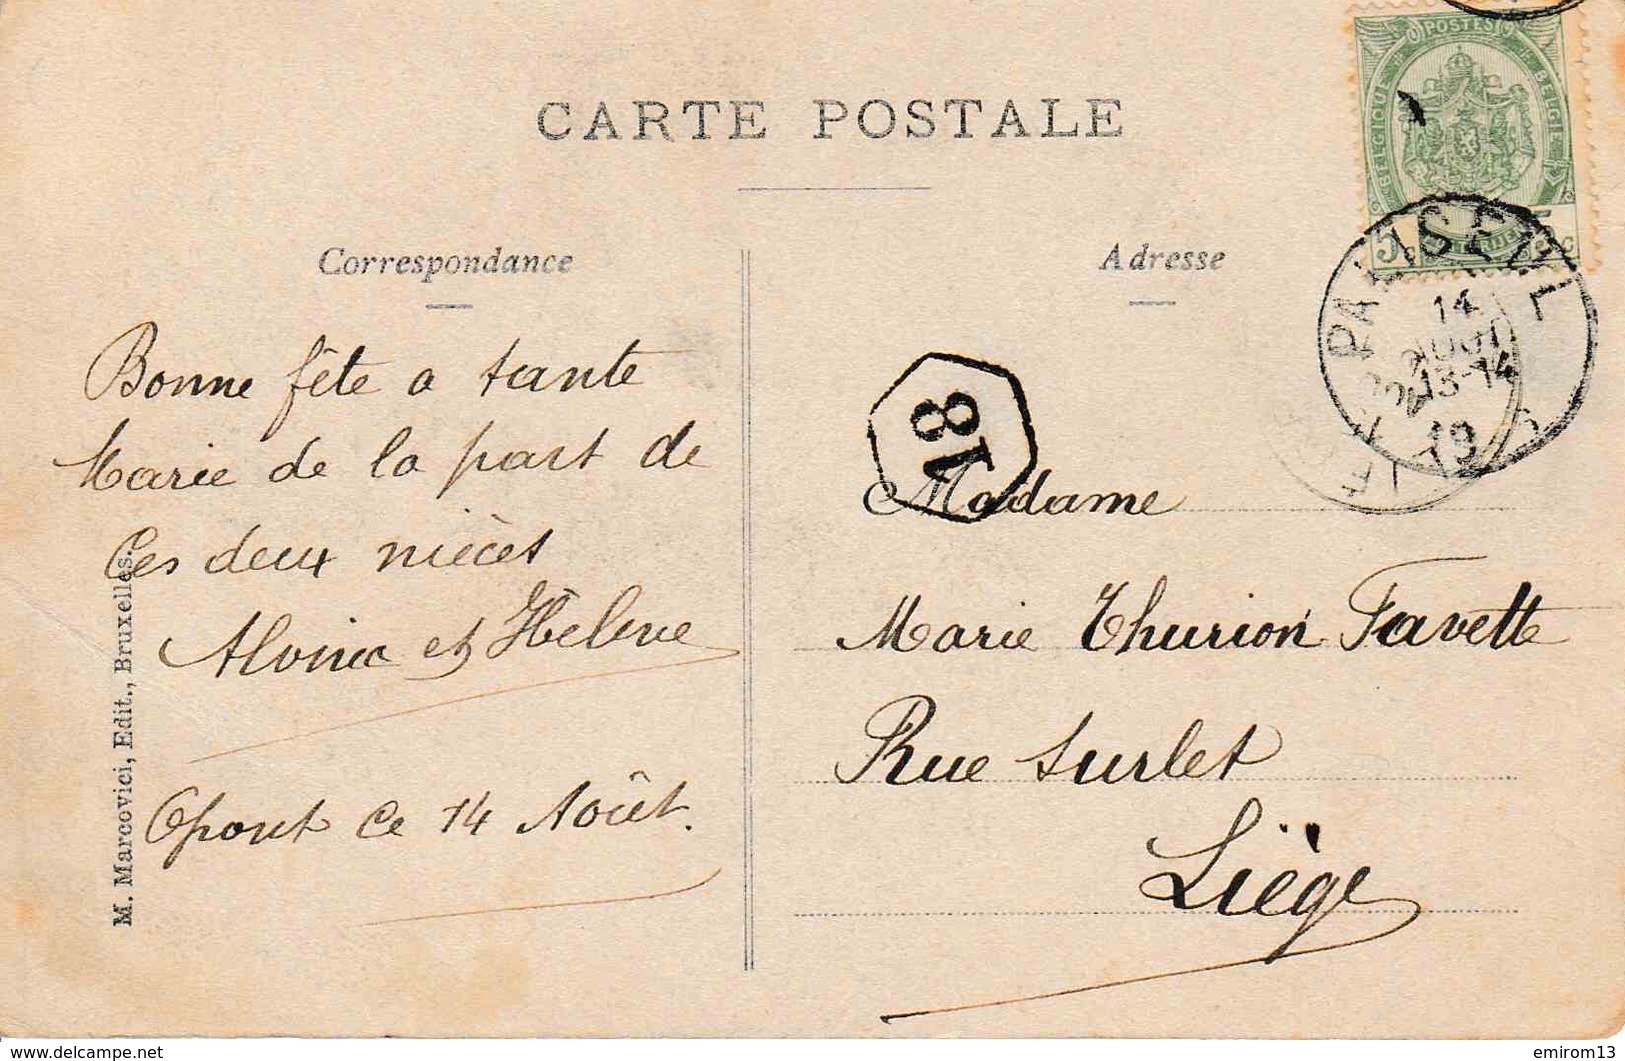 CARTE POSTALE
POSTES
BELGIQUE
BELGIË
5
PALISEUL
14
AOUT
13-14
19
Correspondance
Bonne fête a tante
Marie de la part de
Ces deux nièces
et Hélène
Opont ce 14 Août.
M. Marcovici, Edit., Bruxelles.
Adresse
18
Madame
Marie Thurion Favette
Rue Surlet
Liège
www.delcampe.net
emirom13